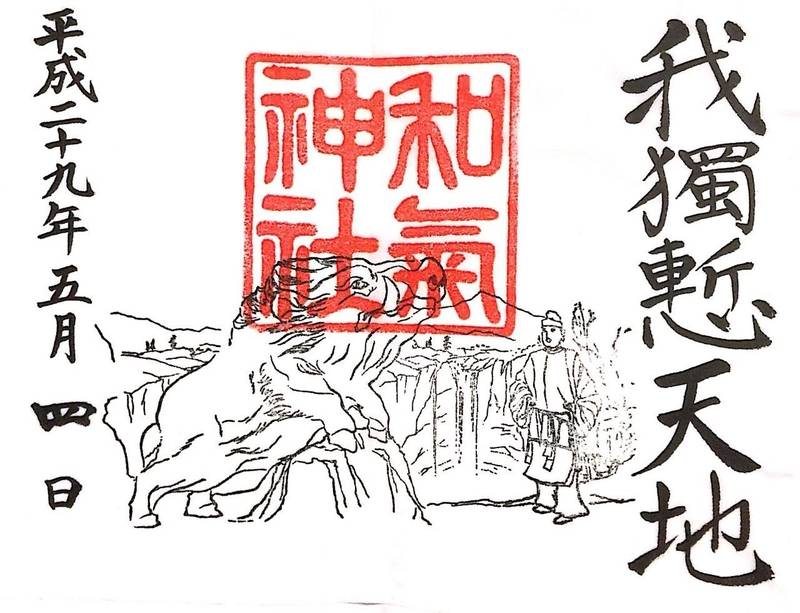 我獨慙天地
和氣
神社
平成二十九年五月四日